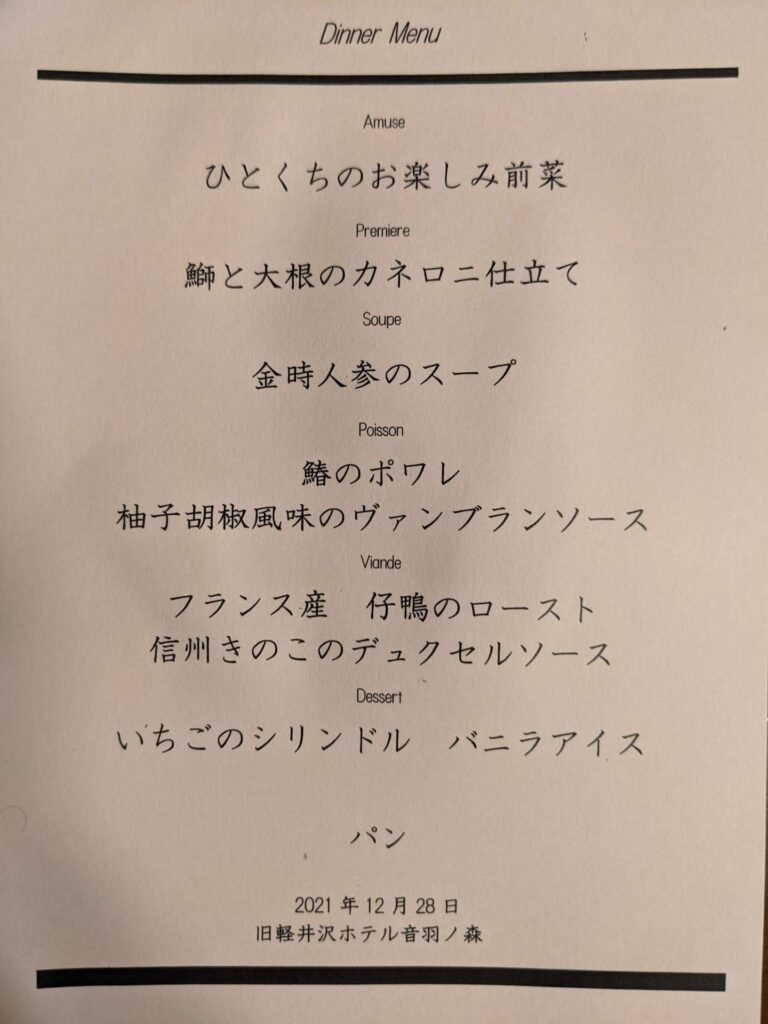 Dinner Menu
Amuse
ひとくちのお楽しみ前菜
Premiere
鰤と大根のカネロニ仕立て
Soupe
金時人参のスープ
Poisson
鰆のポワレ
柚子胡椒風味のヴァンブランソース
Viande
フランス産　仔鴨のロースト
信州きのこのデュクセルソース
Dessert
いちごのシリンドル　バニラアイス
パン
2021 年 12 月 28 日
旧軽井沢ホテル音羽ノ森